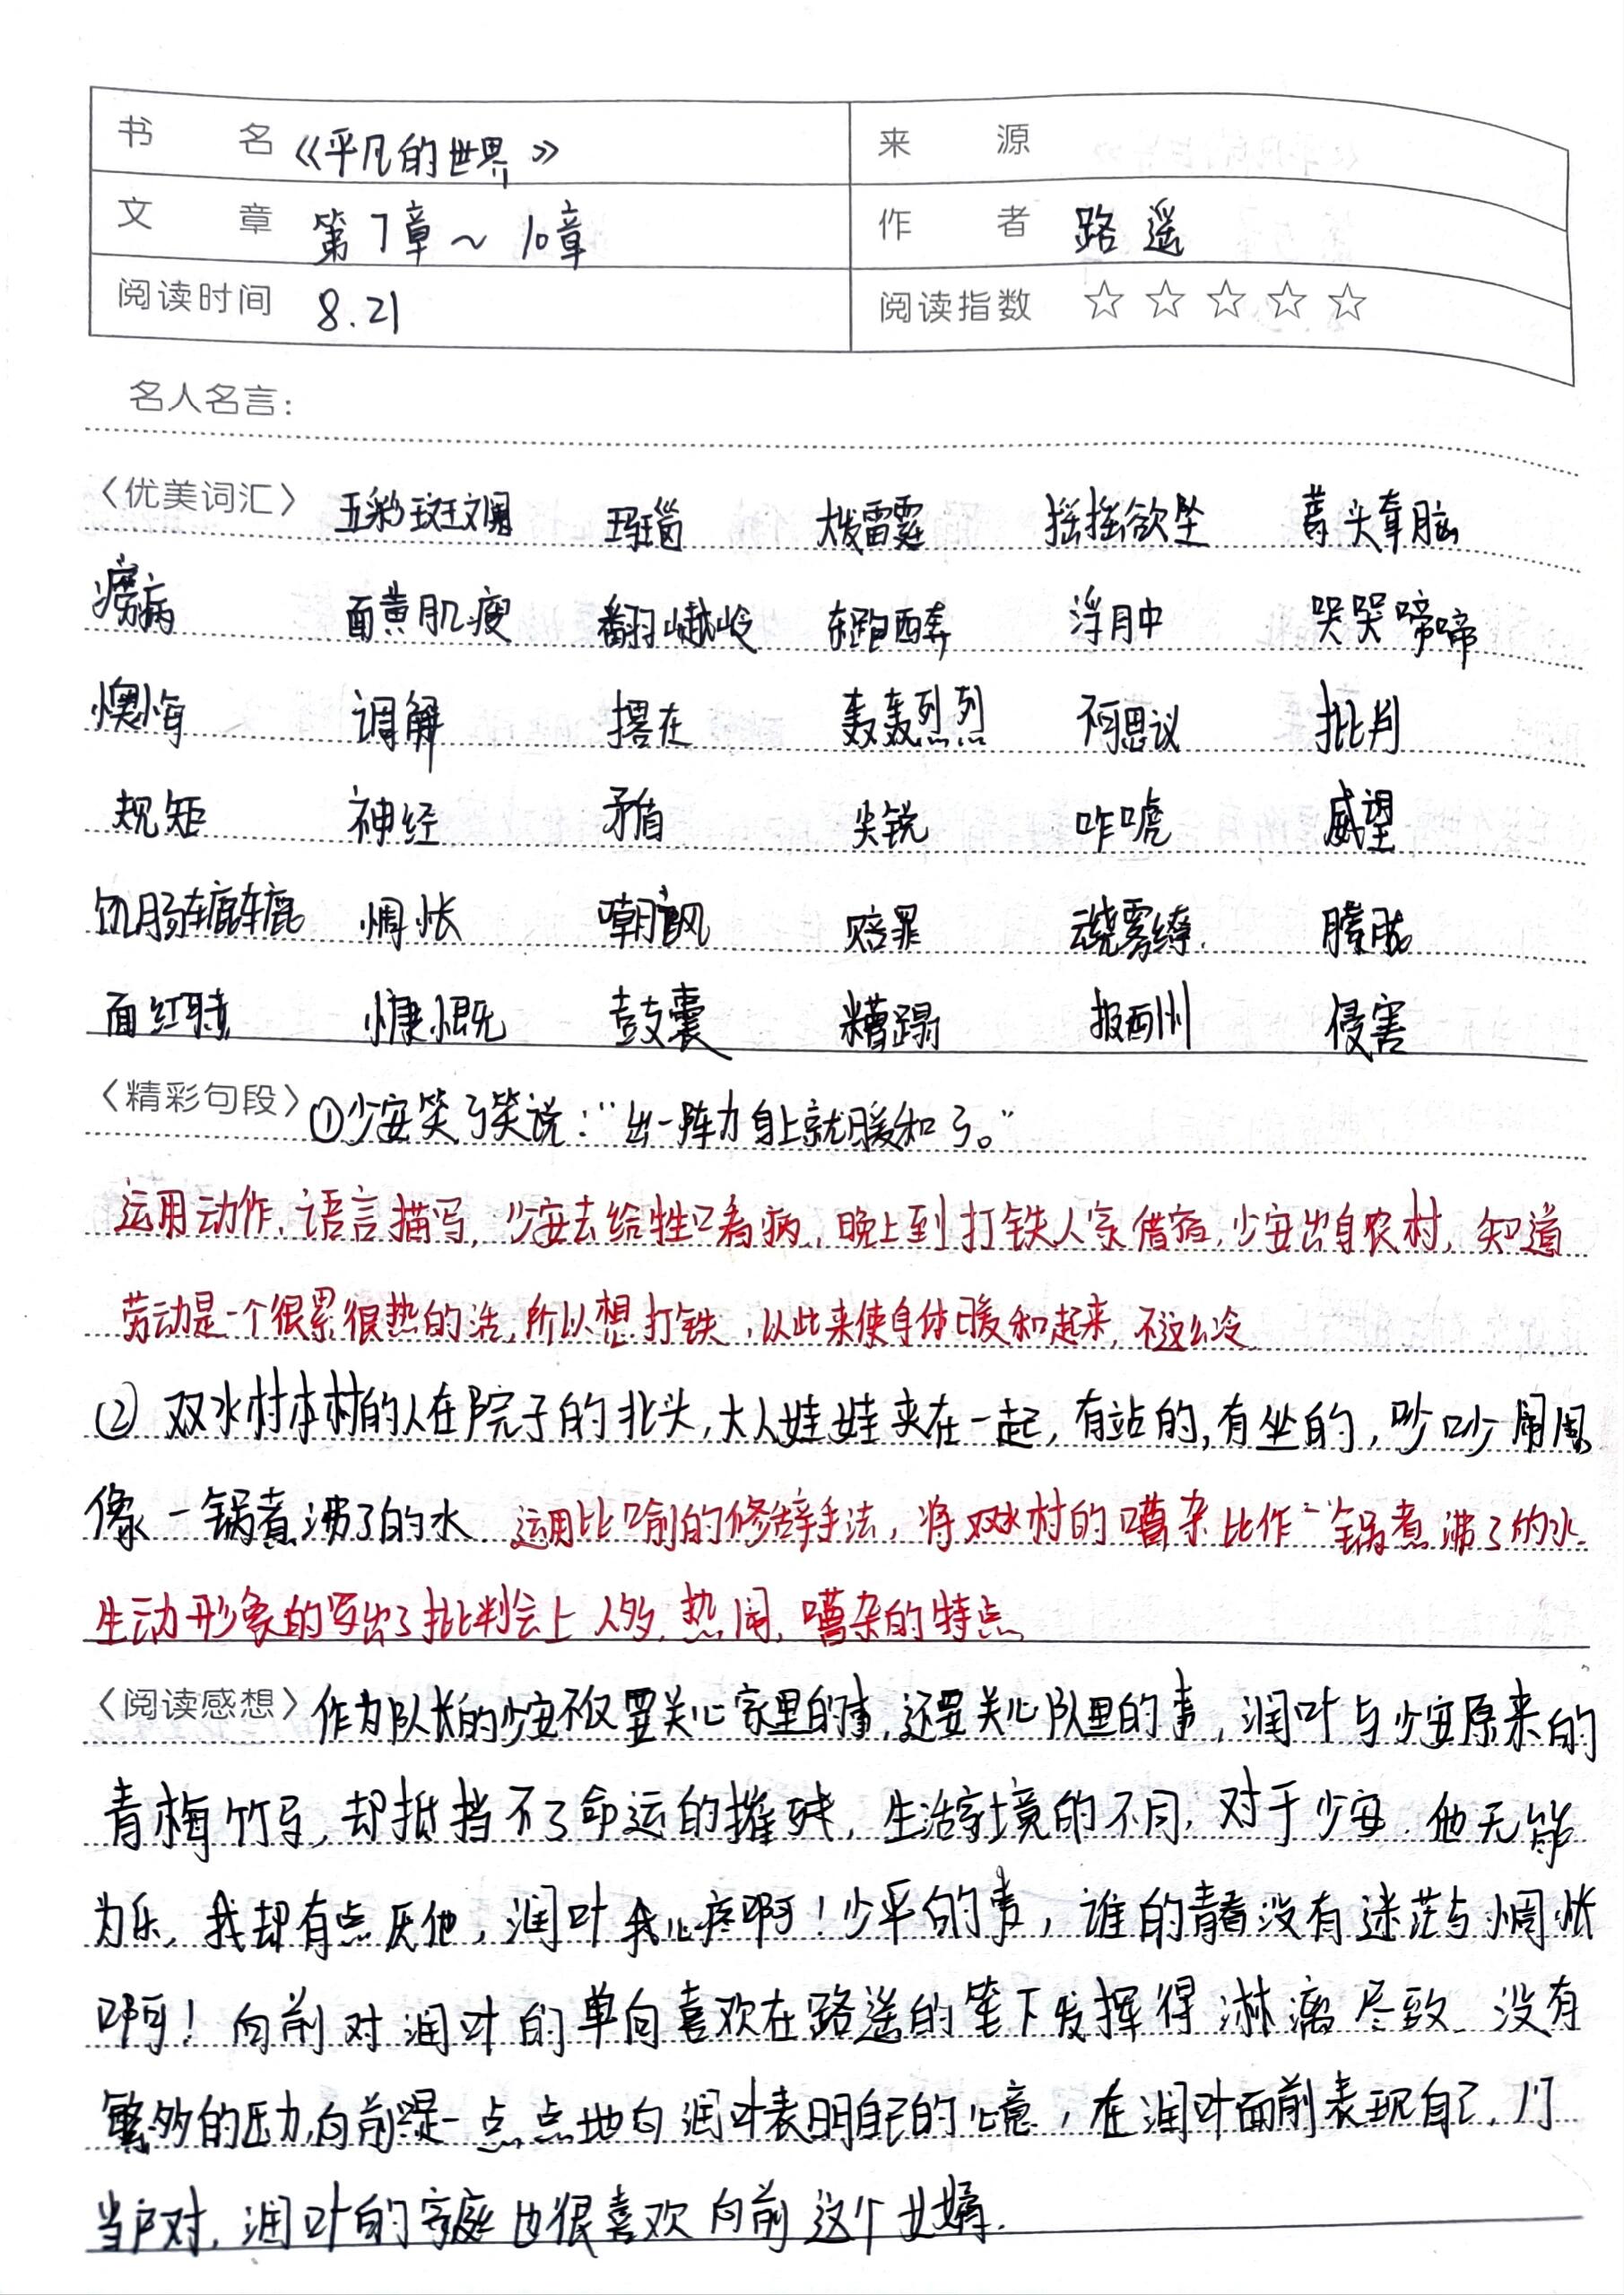 书名 《平凡的世界》 来源
文章 第7章~10章 作者 路遥
阅读时间 8.21 阅读指数 ☆☆☆☆☆
名人名言：
〈优美词汇〉 五彩斑斓 玛瑙 大发雷霆 摇摇欲坠 蒿头耷脑
痨病 面黄肌瘦 翻山越岭 东跑西奔 浮肿 哭哭啼啼
懊悔 调解 撂在 轰轰烈烈 不可思议 批判
规矩 神经 矛盾 尖锐 咋唬 威望
饥肠辘辘 惆怅 嘲讽 赔罪 云雾缭绕 朦胧
面红耳赤 慷慨 鼓囊 糟蹋 报酬 侵害
〈精彩句段〉 ①少安笑了笑说：“出一阵力身上就暖和了。”
运用动作、语言描写，少安去给牲口看病，晚上到打铁人家借宿，少安出身农村，知道
劳动是一个很累很热的活，所以想打铁，以此来使身体暖和起来，不这么冷
② 双水村本村的人在院子的北头，大人娃娃夹在一起，有站的，有坐的，吵吵闹闹
像一锅煮沸了的水 运用比喻的修辞手法，将双水村的嘈杂比作“一锅煮沸了的水
生动形象的写出了批判会上人多，热闹，嘈杂的特点
〈阅读感想〉 作为队长的少安不仅要关心家里的事，还要关心队里的事，润叶与少安原来的
青梅竹马，却抵挡不了命运的摧残，生活家境的不同，对于少安，他无能
为乐，我却有点厌他，润叶我心疼啊！少平的事，谁的青春没有迷茫与惆怅
啊！向前对润叶的单向喜欢在路遥的笔下发挥得淋漓尽致 没有
繁多的压力，向前只是一点点地向润叶表明自己的心意，在润叶面前表现自己，门
当户对，润叶的家庭也很喜欢向前这个女婿.